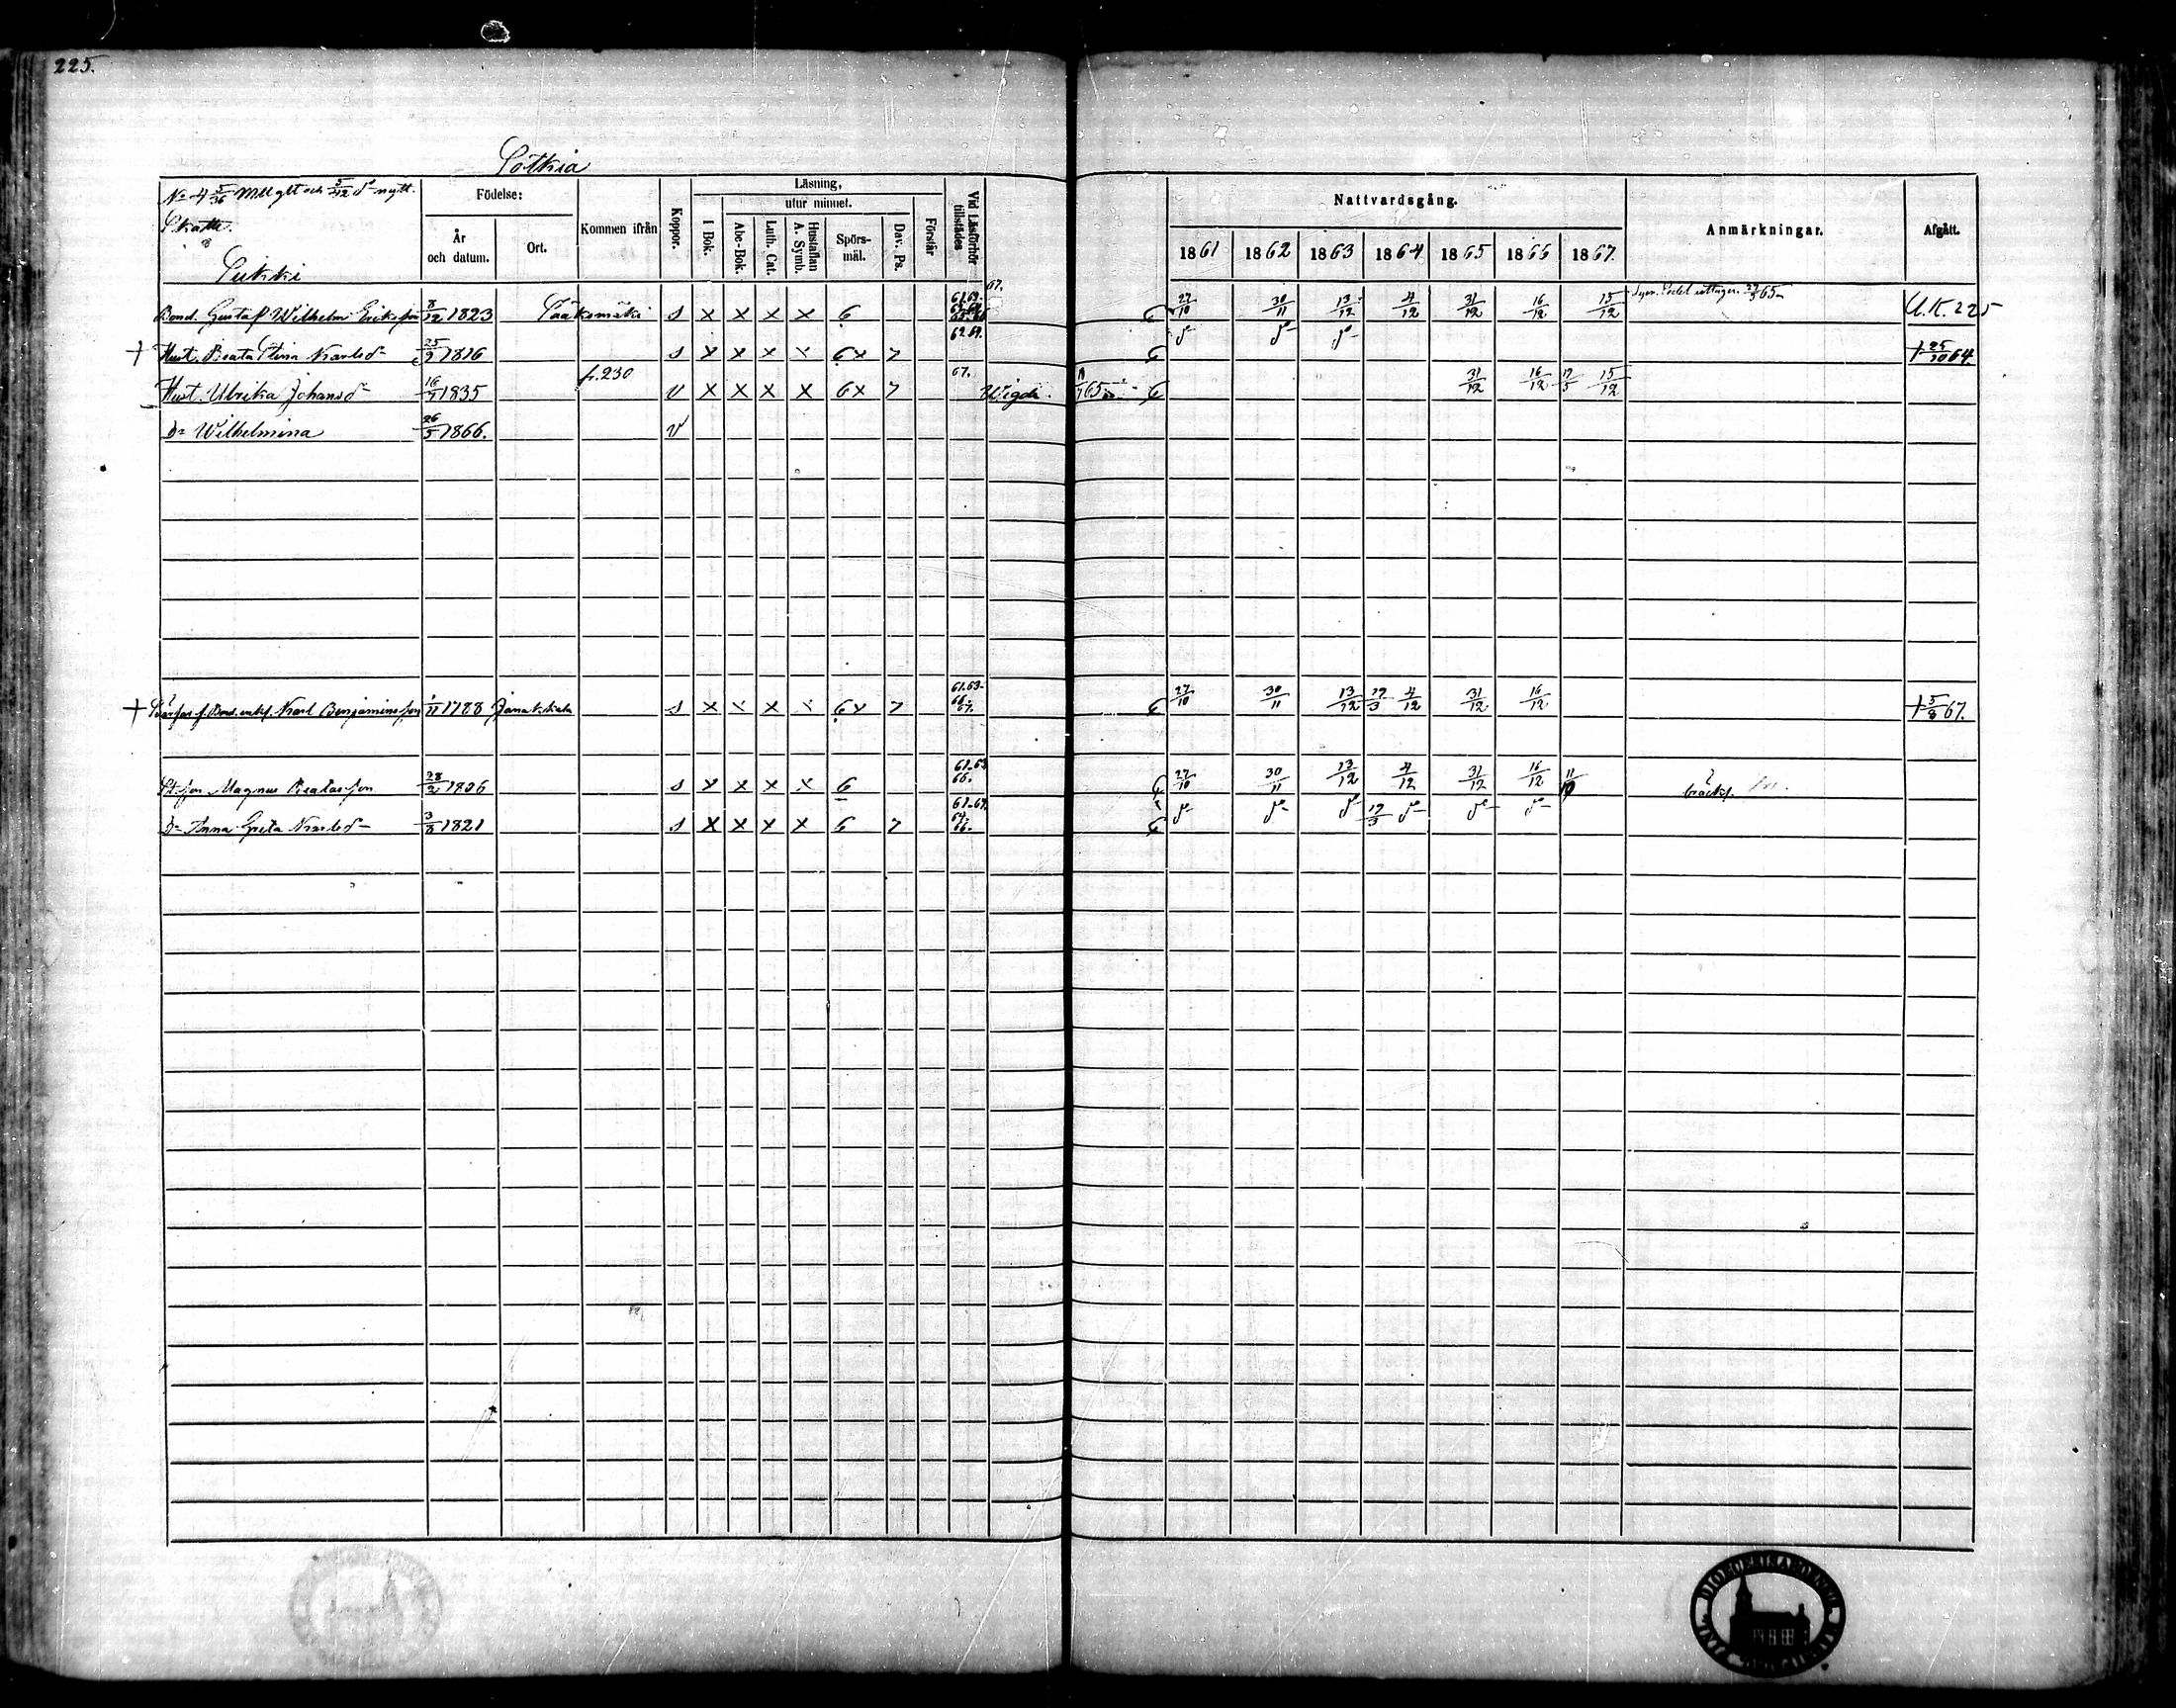 225.
Sotkia
No 4 5/36 Mtl glt och 5/12 do nytt.
Skatte.
Sukki
Födelse:
År och datum.
Ort.
Kommen ifrån
Koppor.
Läsning,
utur minnet.
I Bok.
Abc-Bok.
Luth. Cat.
Hustaflan A. Symb.
Spörs-mål.
Dav. Ps.
Förstår
Vid Läsförhör tillstädes
Nattvardsgång.
1861 1862 1863 1864 1865 1866 1867.
Anmärkningar.
Afgått.
67.
Bond. Gustaf Wilhelm Eriksson 8/12 1823 Sääksmäki s x x x x 6 27/10 30/11 13/12 4/12 31/12 16/12 15/12 27/5 65 U.K. 225
† Hust. Beata Stina Karlsdr 25/2 1816 s x x x x 6x 7 62.64. do do do † 25/10 64
Hust. Ulrika Johansdr 16/9 1835 fr. 230 v x x x x 6x 7 67. Wigde 65 31/12 16/12 17/5 15/12
Dr Wilhelmina 26/5 1866. v
† Karl Benjaminsson 1/11 1788 Janakkala s x x x x 6x 7 61.63. 66. 67. 27/10 30/11 13/12 17/3 4/12 31/12 16/12 † 5/8 67.
St.son Magnus Beatasson 28/2 1806 s x x x x 6 61.63 66. 27/10 30/11 13/12 4/12 31/12 16/12 11/10 bräckl.
Dr Anna Greta Karlsdr 3/8 1821 s x x x x 6 7 66. do do do 17/3 do do do